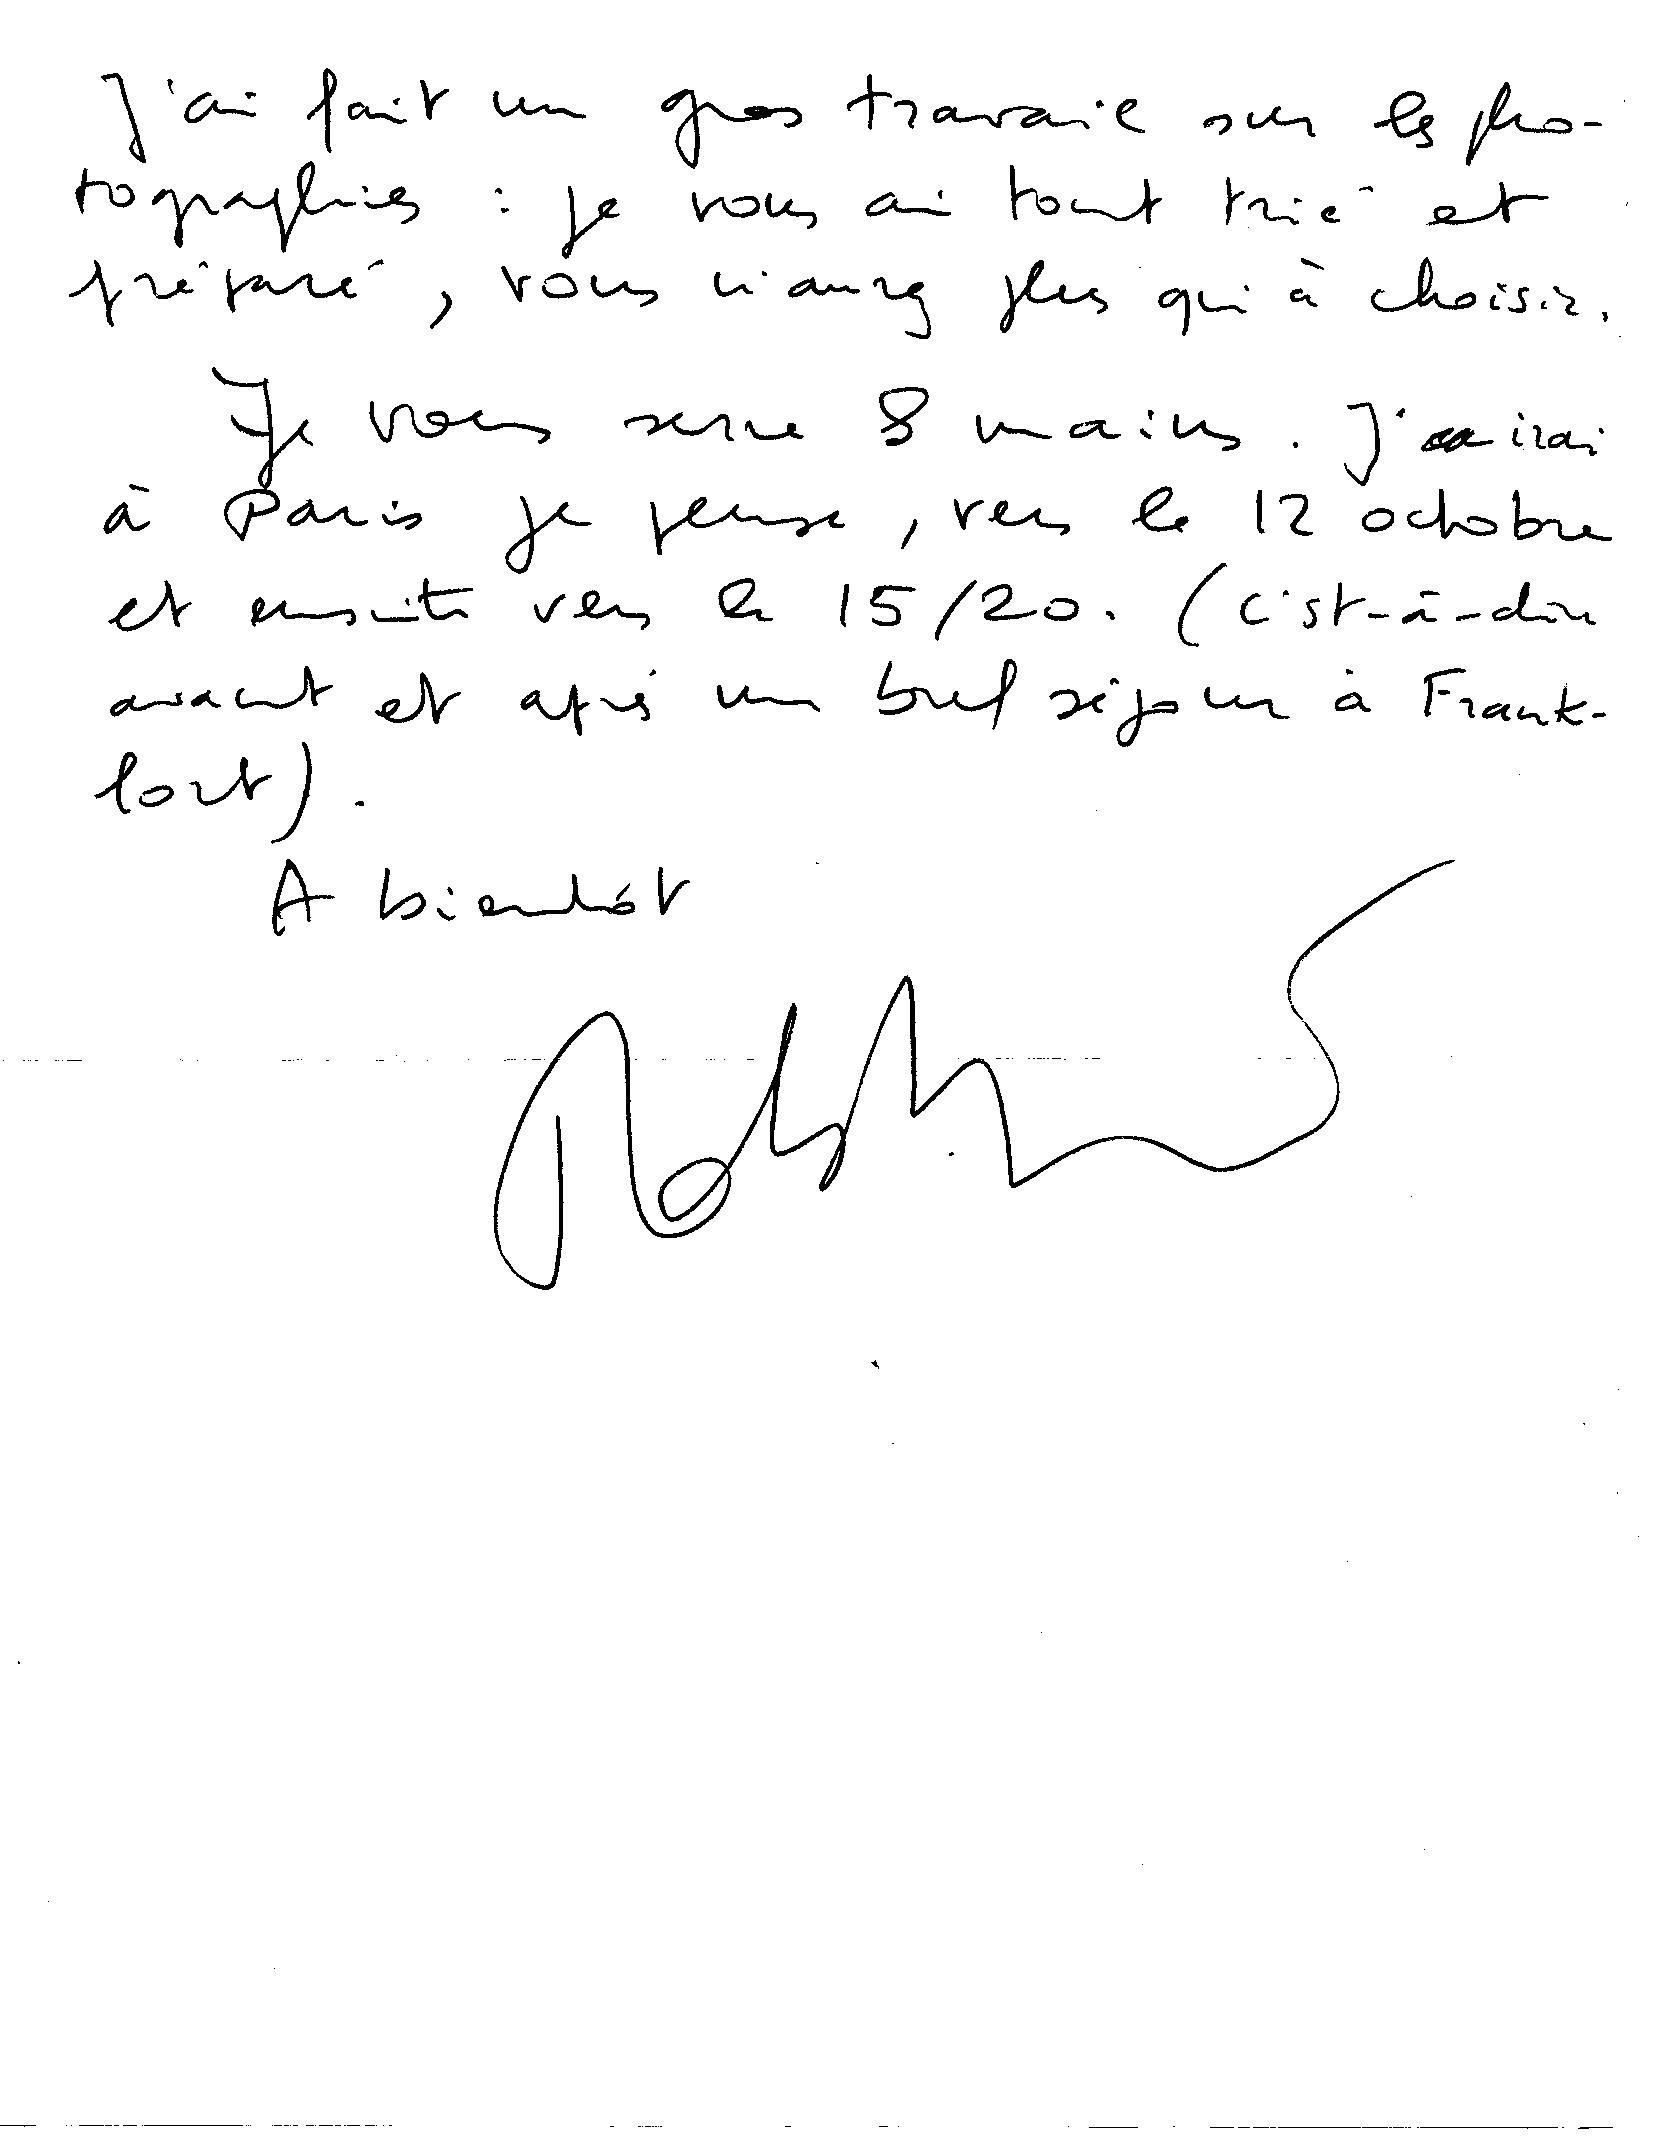 J'ai fait un gros travail sur les pho-
tographies : je vous ai tout trié et
préparé, vous n'aurez plus qu'à choisir.
Je vous serre 8 mains. J'irai
à Paris je pense, vers le 12 octobre
et ensuite vers le 15/20. (c'est-à-dire
avant et après un bref séjour à Frank-
fort).
A bientôt